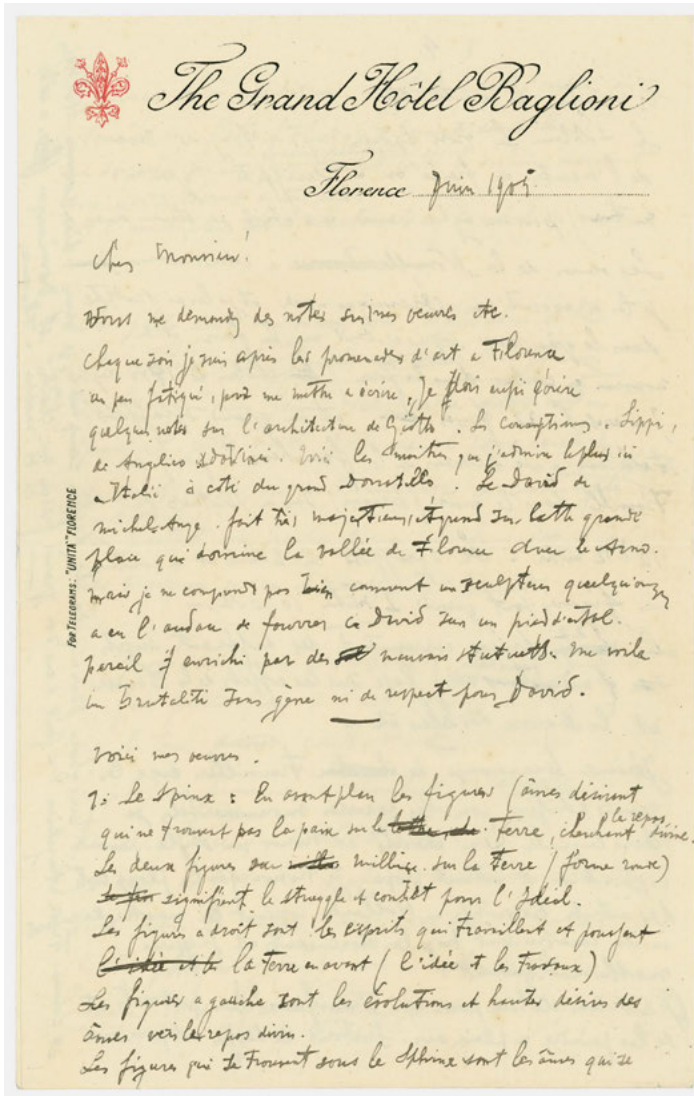 The Grand Hôtel Baglioni
Florence Juin 1905
Cher Monsieur!
Vous me demandez des notes sur mes oeuvres etc.
Chaque soir je suis après les promenades d'art a Florence
un peu fatigué, pour me mettre a écrire, Je dois aussi écrire
quelques notes sur l'architecture de Giotto. Les conceptions. Lippi,
de Angelico Voici les maitres que j'admire le plus ici
Italie à coté du grand Donatello. Le David de
michel-Ange. fait très majestieus et grand sur cette grande
place qui domine la vallée de Florence avec le Arno.
mais je ne comprends pas comment un sculpteur
a eu l'audace de fourrer ce David sur un piedestal.
pareil enrichi par des mauvais statuetts. me voila
la Brutalité sans gêne ni de respect pour David.
Voici mes oeuvres.
1: Le Spinx: En avant plan les figures (âmes désirent
qui ne trouvent pas la paix sur le terre, cherchent le repos divine.
Les deux figures au sur la terre (forme ronde)
signifient le struggle et combat pour l'Ideal.
Les figures a droit sont les esprits qui travaillent et poussent
l'idée et les la terre en avant (l'idée et les Travaux)
Les figures a gauche sont les évolutions et hautes désires des
âmes vers le repos divin.
Les figures qui se trouvent sous le Sphinx sont les âmes qui se
FOR TELEGRAMS: "UNITA" FLORENCE